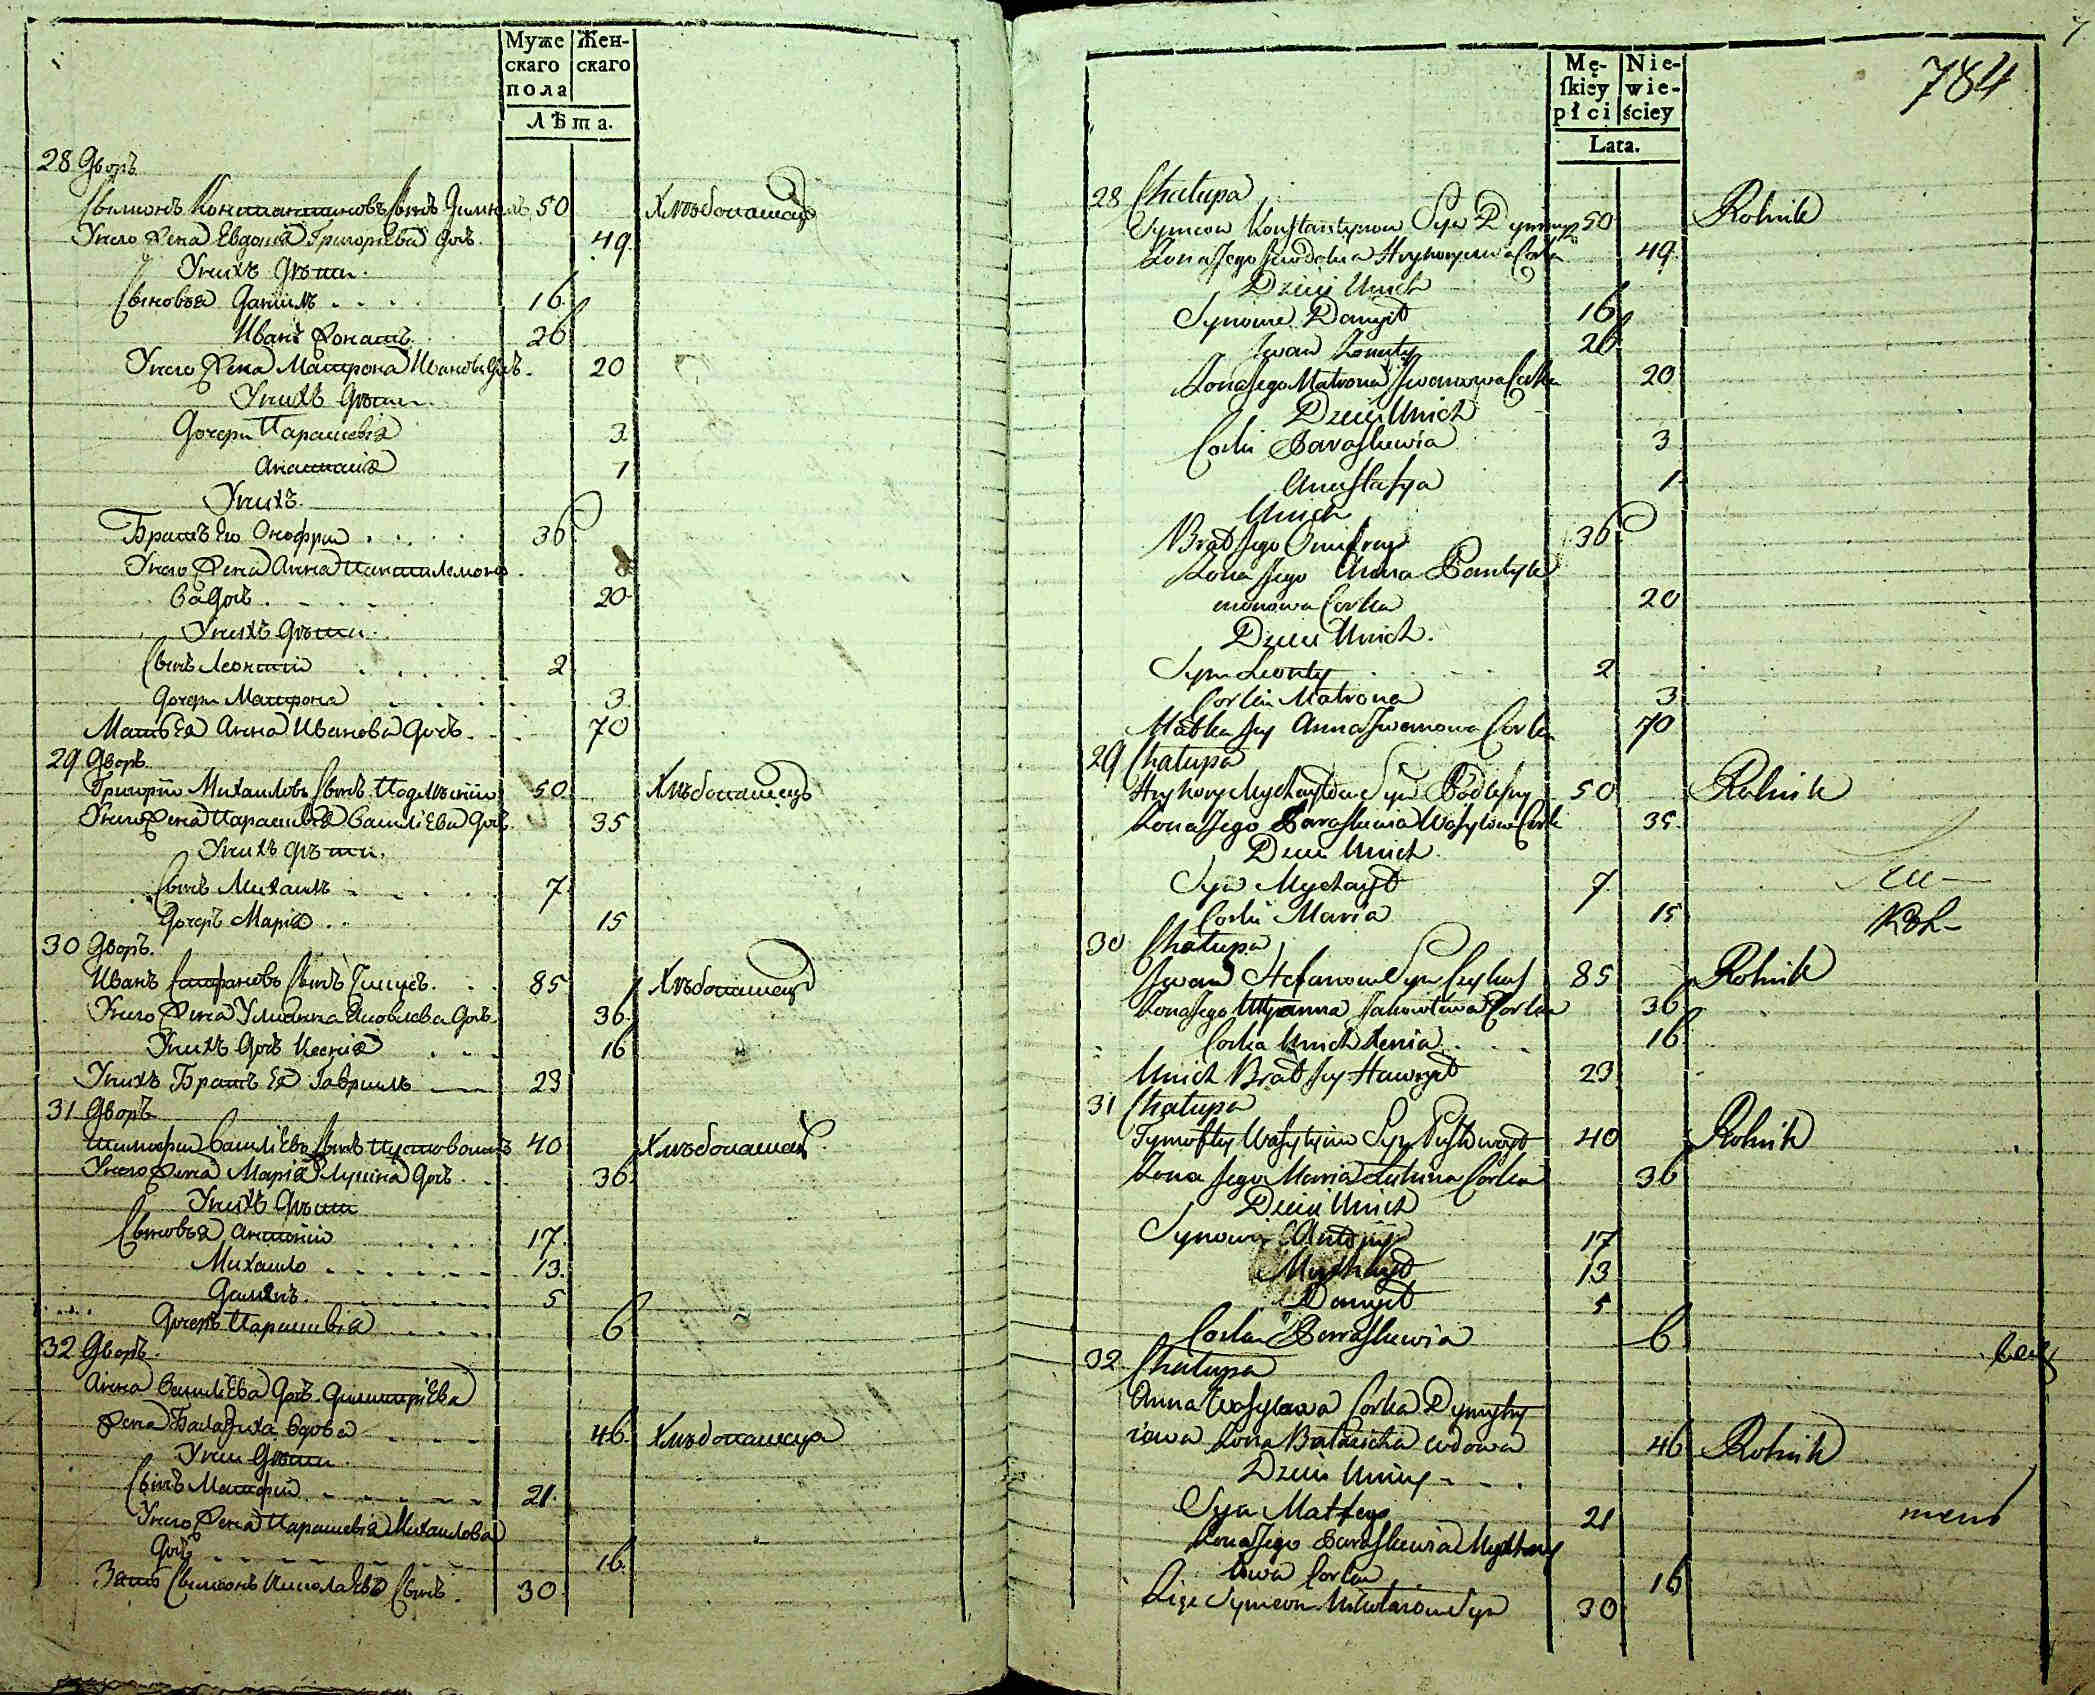 Муже Жен-
скаго скаго
пола
Лѣта.
28 Дворъ
Свимонъ Константиновъ Сынъ 50 Хлѣбопашецъ
Унего Жена Евдокия Григориева Дочь 49
Унихъ Дѣти
Сыновья Данилъ 16
Иванъ Жонатъ 26
Унего Жена Матрона Иванова Дочь 20
Унихъ Дѣти
Дочери Параскевія 3
Анастасия 1
Унихъ
Братъ Его Онофрий 36
Унего Жена Анна Пантилемоно
ва Дочь 20
Унихъ Дѣти
Сынъ Леонтий 2
Дочери Матрона 3
Мать Ея Анна Иванова Дочь 70
29 Дворъ
Григорїи Михаиловъ Сынъ Подлѣский 50 Хлѣбопашецъ
Унего Жена Параскевія Василіева Дочь 35
Унихъ Дѣти
Сынъ Михаилъ 7
Дочерь Марія 15
30 Дворъ
Иванъ Стефановъ Сынъ 85 Хлѣбопашецъ
Унего Жена Улиянна Яковлева Дочь 36
Унихъ Дочь Ксения 16
Унихъ Братъ Ея Гаврилъ 23
31 Дворъ
Тимофей Василїевъ Сынъ 40 Хлѣбопашецъ
Унего Жена Марія Лукина Дочь 36
Унихъ Дѣти
Сыновья Антонїй 17
Михаило 13
Данилъ 5
Дочерь Параскевія 6
32 Дворъ
Анна Василїева Дочь Димитріева
Жена Балазиха Вдова 46 Хлѣбопашца
Унеи Дѣти
Сынъ Матфей 21
Унего Жена Параскевія Михаилова
Дочь 16
Зять Свимеонъ Николаевъ Сынъ 30
Mę- Nie-
skiey wie-
płci ściey
Lata.
784
28 Chałupa
Symeon Konstantynow Syn 50 Rolnik
Zona Jego Jewdokia Hryhorywa Corka 49
Dzieci Unich
Synowie Danyło 16
Iwan Zonaty 26
Zona Jego Matrona Iwanowa Corka 20
Dzieci Unich
Corki Paraskewia 3
Anastasya 1
Unich
Brat Jego Onufrey 36
Zona Jego Anna Pantyle
monowa Corka 20
Dzieci Unich
Syn Leonty 2
Corka Matrona 3
Matka Jey Anna Iwanowa Corka 70
29 Chałupa
Hryhory Mychayłow Syn Podlesny 50 Rolnik
Zona Jego Paraskewia Wasylowa Corka 35
Dzieci Unich
Syn Mychayło 7
Corka Maria 15
30 Chałupa
Iwan Stefanow Syn 85 Rolnik
Zona Jego Ulyanna Jakowlewa Corka 36
Corka Unich Xenia 16
Unich Brat Jey Hawryło 23
31 Chałupa
Tymofey Wasylyiow Syn 40 Rolnik
Zona Jego Maria Lukina Corka 36
Dzieci Unich
Synowie Antoniy 17
Mychayło 13
Danyło 5
Corka Paraskewia 6
32 Chałupa
Anna Wasylowa Corka Dymytry
iowa Zona Balazicha wdowa 46 Rolnik
Dzieci Uniey
Syn Matfey 21
Zona Jego Paraskewia Mychay
łowa Corka 16
Zięć Symeon Mikołaiow Syn 30